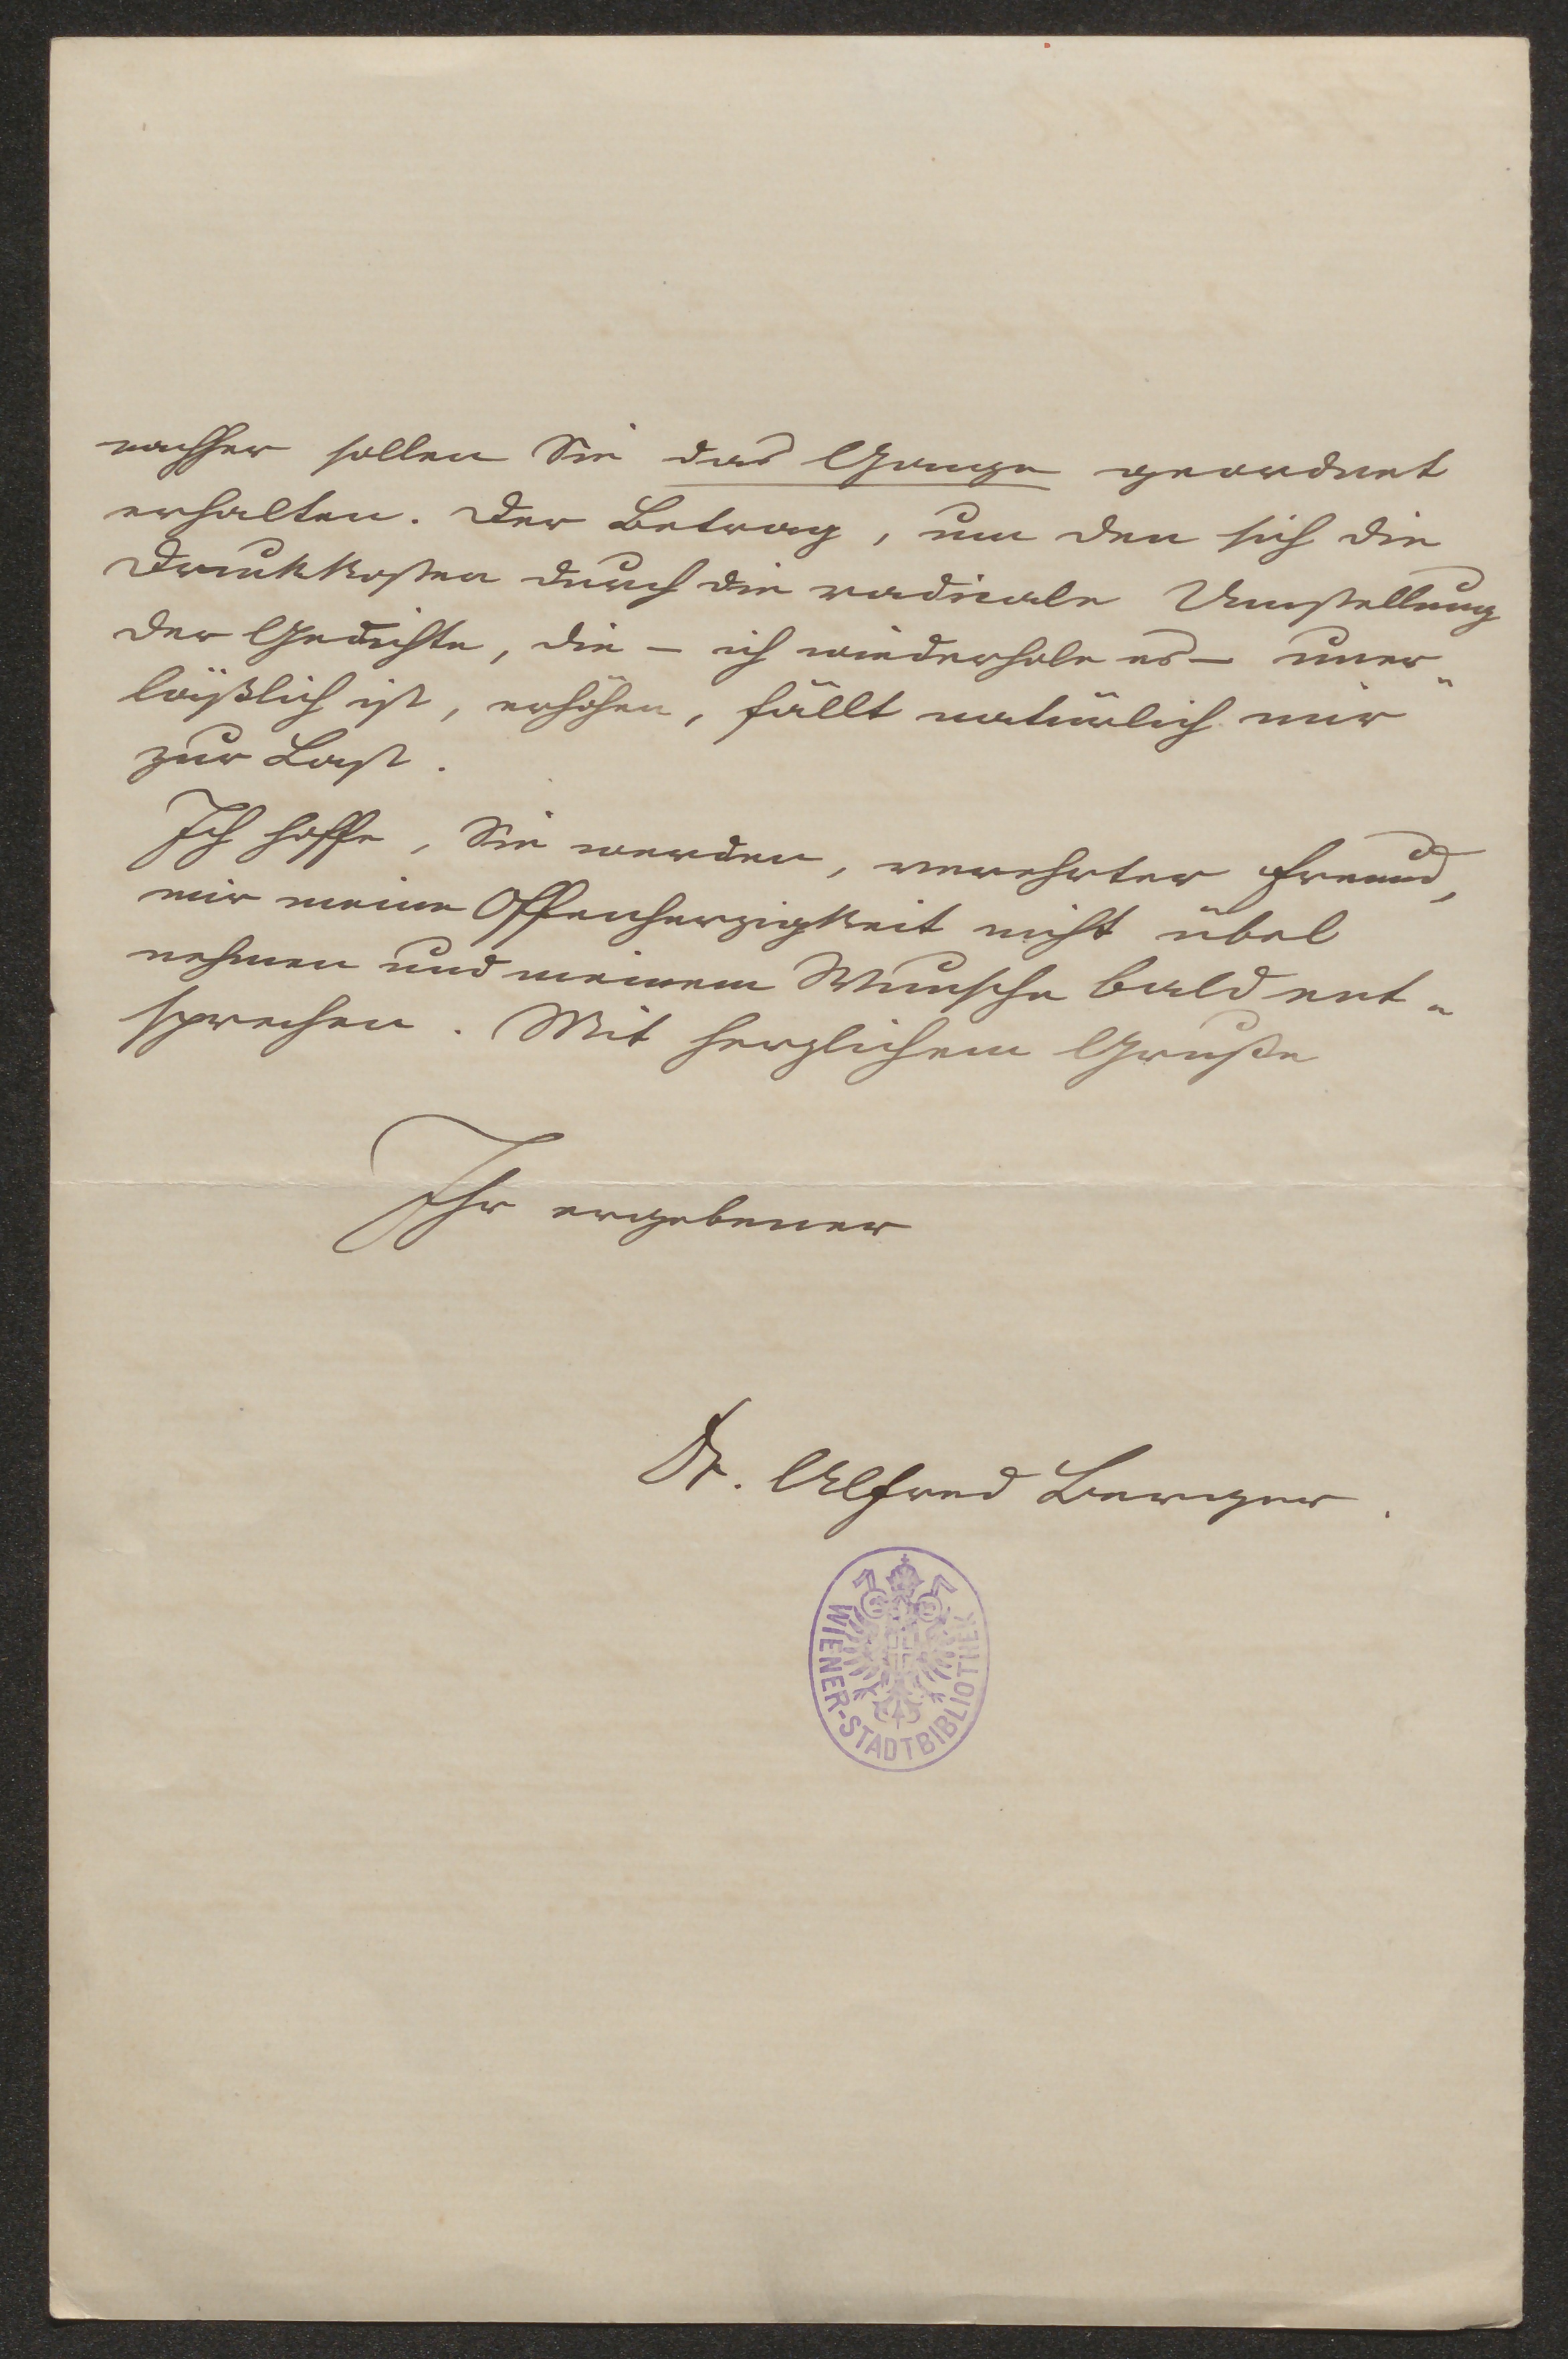 nachher sollen Sie das Ganze geordnet
erhalten. Der Betrag, um den sich die
Druckkosten durch die radicale Umstellung
der Gedichte, die – ich wiederhole es – uner„
läßlich ist, erhöhen, fällt natürlich mir
zur Last.
Ich hoffe, Sie werden, verehrter Freund,
mir meine Offenherzigkeit nicht übel
nehmen und meinem Wunsche bald ent„
sprechen. Mit herzlichem Gruße
Ihr ergebener
Dr. Alfred Berger.
WIENER-STADTBIBLIOTHEK